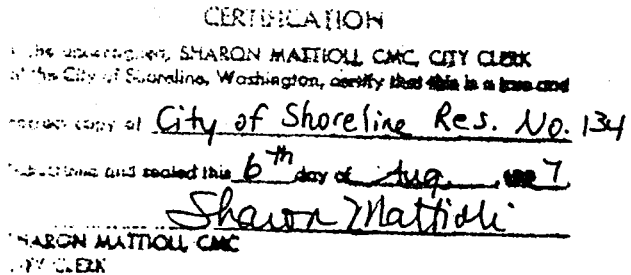 CERTIFICATION
the undersigned, SHARON MATTIOLI, CMC, CITY CLERK
of the City of Shoreline, Washington, certify that this is a true and
correct copy of City of Shoreline Res. No. 134
and sealed this 6th day of Aug 1997
Sharon Mattioli
SHARON MATTIOLI, CMC
CITY CLERK